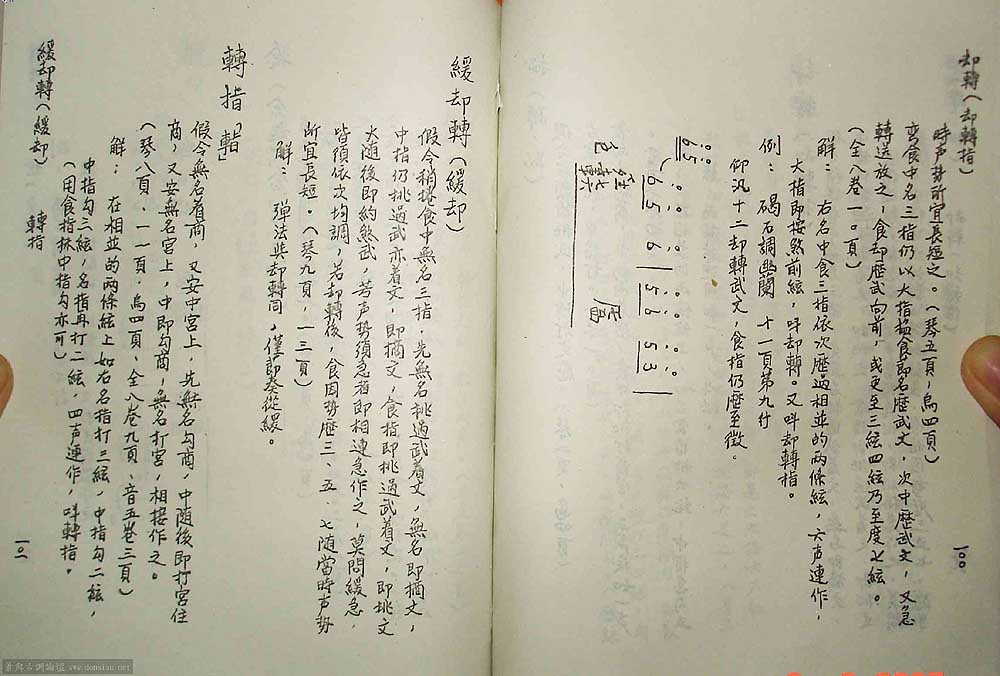 却轉（却轉指）
時声勢所宜長短之。（琴五頁，烏四頁）
弯食中名三指仍以大指搵食即名歷武文，次中歷武文，又急
轉送放之，食却歷武向前，或更至三絃四絃乃至度七絃。
（全八巻一〇頁）
解：右名中食三指依次歷過相並的两條絃，六声連作，
大指即按煞前絃，呌却轉。又呌却轉指。
例：碣石調幽蘭 十一頁第九行
仰汎十二却轉武文，食指仍歷至徵。
65 6 5 6 | 5 6 5 3 |
一〇〇
緩却轉（緩却）
假令稍捲食中無名三指，先無名挑過武着文，無名即摘文，
中指仍挑過武亦着文，即摘文，食指即挑過武着文，即挑文
大随後即約煞武，若声勢須急者即相連急作之，莫問緩急，
皆須依次均調，若却轉後，食因勢歷三、五、七随當時声勢
所宜長短。（琴九頁，一三頁）
解：弹法與却轉同，僅即奏從緩。
轉指「」
假令無名着商，又安中宮上，先無名勾商，中随後即打宮住
商，又安無名宮上，中即勾商，無名打宮，相接作之。
（琴八頁、一一頁．烏四頁、全八巻九頁、音五巻三頁）
解：在相並的两條絃上如右名指打三絃，中指勾二絃，
中指勾三絃，名指再打二絃，四声連作，呌轉指。
（用食指抹中指勾亦可）
緩却轉（緩却） 轉指
一〇一
www.donsiau.net